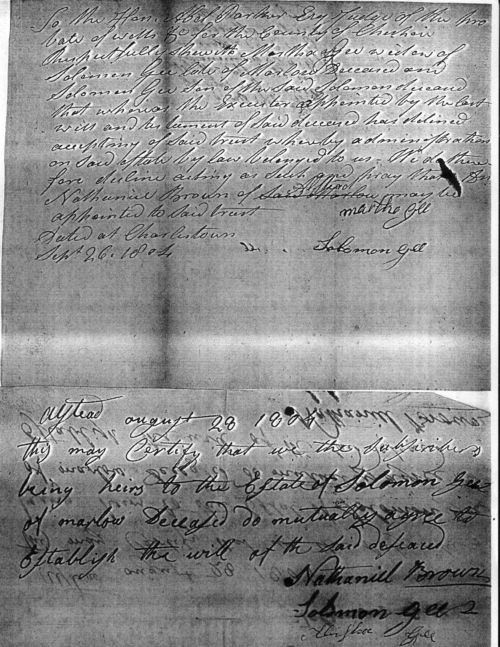 To the Hon. Abel Parker Esq Judge of the Pro
bate of wills &c for the County of Cheshire
Respectfully sheweth Martha Gee widow of
Solomon Gee late of Marlow Deceased and
Solomon Gee Son of the said Solomon deceased
that whereas the Executor appointed by the last
will and testament of said deceased has declined
accepting of said trust whereby administration
on said estate by law belonged to us. We do there
fore decline acting as such and pray that
Nathaniel Brown of said Marlow may be
appointed to said trust
Martha Gee
Dated at Charlestown
Sept. 26. 1804
Solomon Gee
Alstead august 28 1804
this may Certify that we the subscribers
being heirs to the Estate of Solomon Gee
of marlow Deceased do mutually agree to
Establish the will of th said deceased
Nathaniel Brown
Solomon Gee
Gee